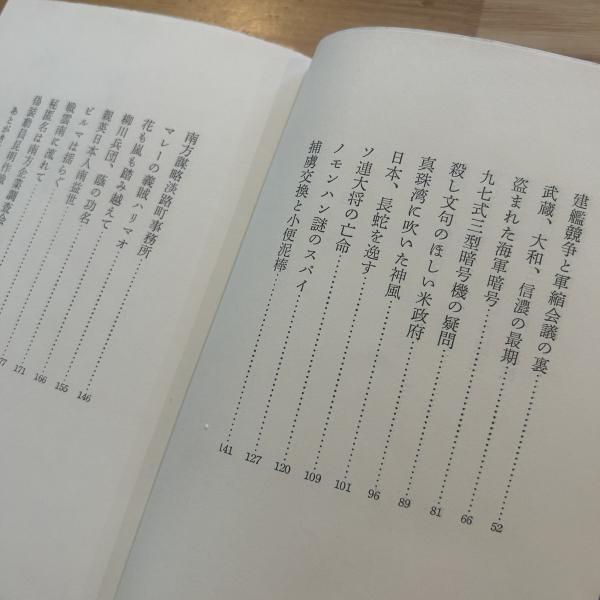 建艦競争と軍縮会議の裏……52
武蔵、大和、信濃の最期……66
盗まれた海軍暗号……81
九七式三型暗号機の疑問……89
殺し文句のほしい米政府……96
真珠湾に吹いた神風……101
日本、長蛇を逸す……109
ソ連大将の亡命……120
ノモンハン謎のスパイ……127
捕虜交換と小便泥棒……141
南方謀略淡路町事務所
マレーの義賊ハリマオ……146
花も嵐も踏み越えて……155
柳川兵団、蔭の功名……166
親英日本人南益世……171
ビルマは揺らぐ……77
戦雲南に流れて
秘匿名は南方企業調査会
偽装動員昆明作戦
あとが